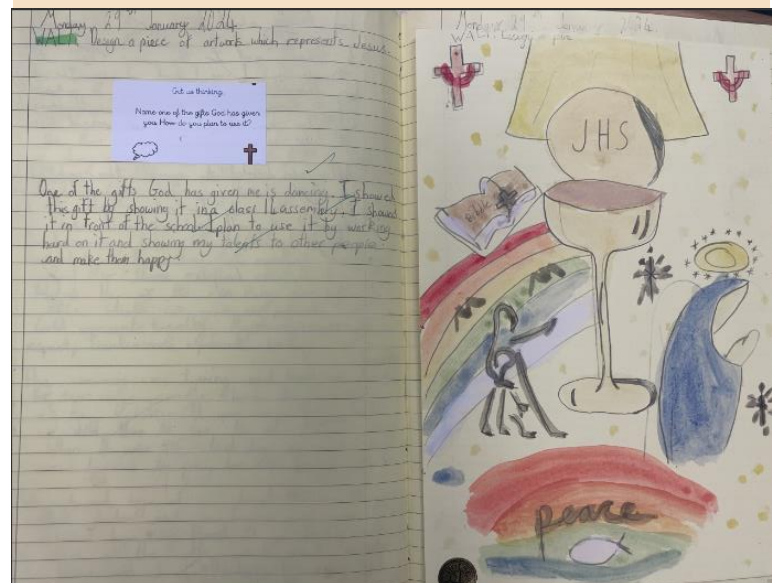 Monday 29th January 2024
WALT: Design a piece of artwork which represents Jesus.
Get us thinking:
Name one of the gifts God has given
you. How do you plan to use it?
One of the gifts God has given me is dancing. I showed
this gift by showing it in a class assembly. I showed
it in front of the school. I plan to use it by working
hard on it and showing my talents to other people
and make them happy
Monday 29th January 2024
WALT: Design a
JHS
Bible
peace